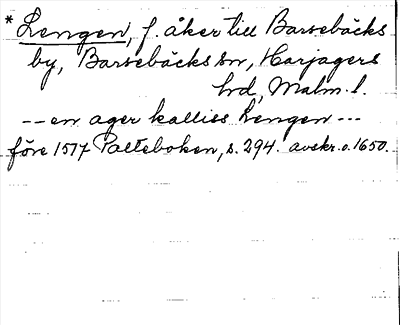 * Lengen, f. åker till Barsebäcks
by, Barsebäcks sn, Harjagers
hd, Malm. l.
-- en ager kalliss Lengen ---
före 1517 Palteboken, s. 294. avskr. o. 1650.